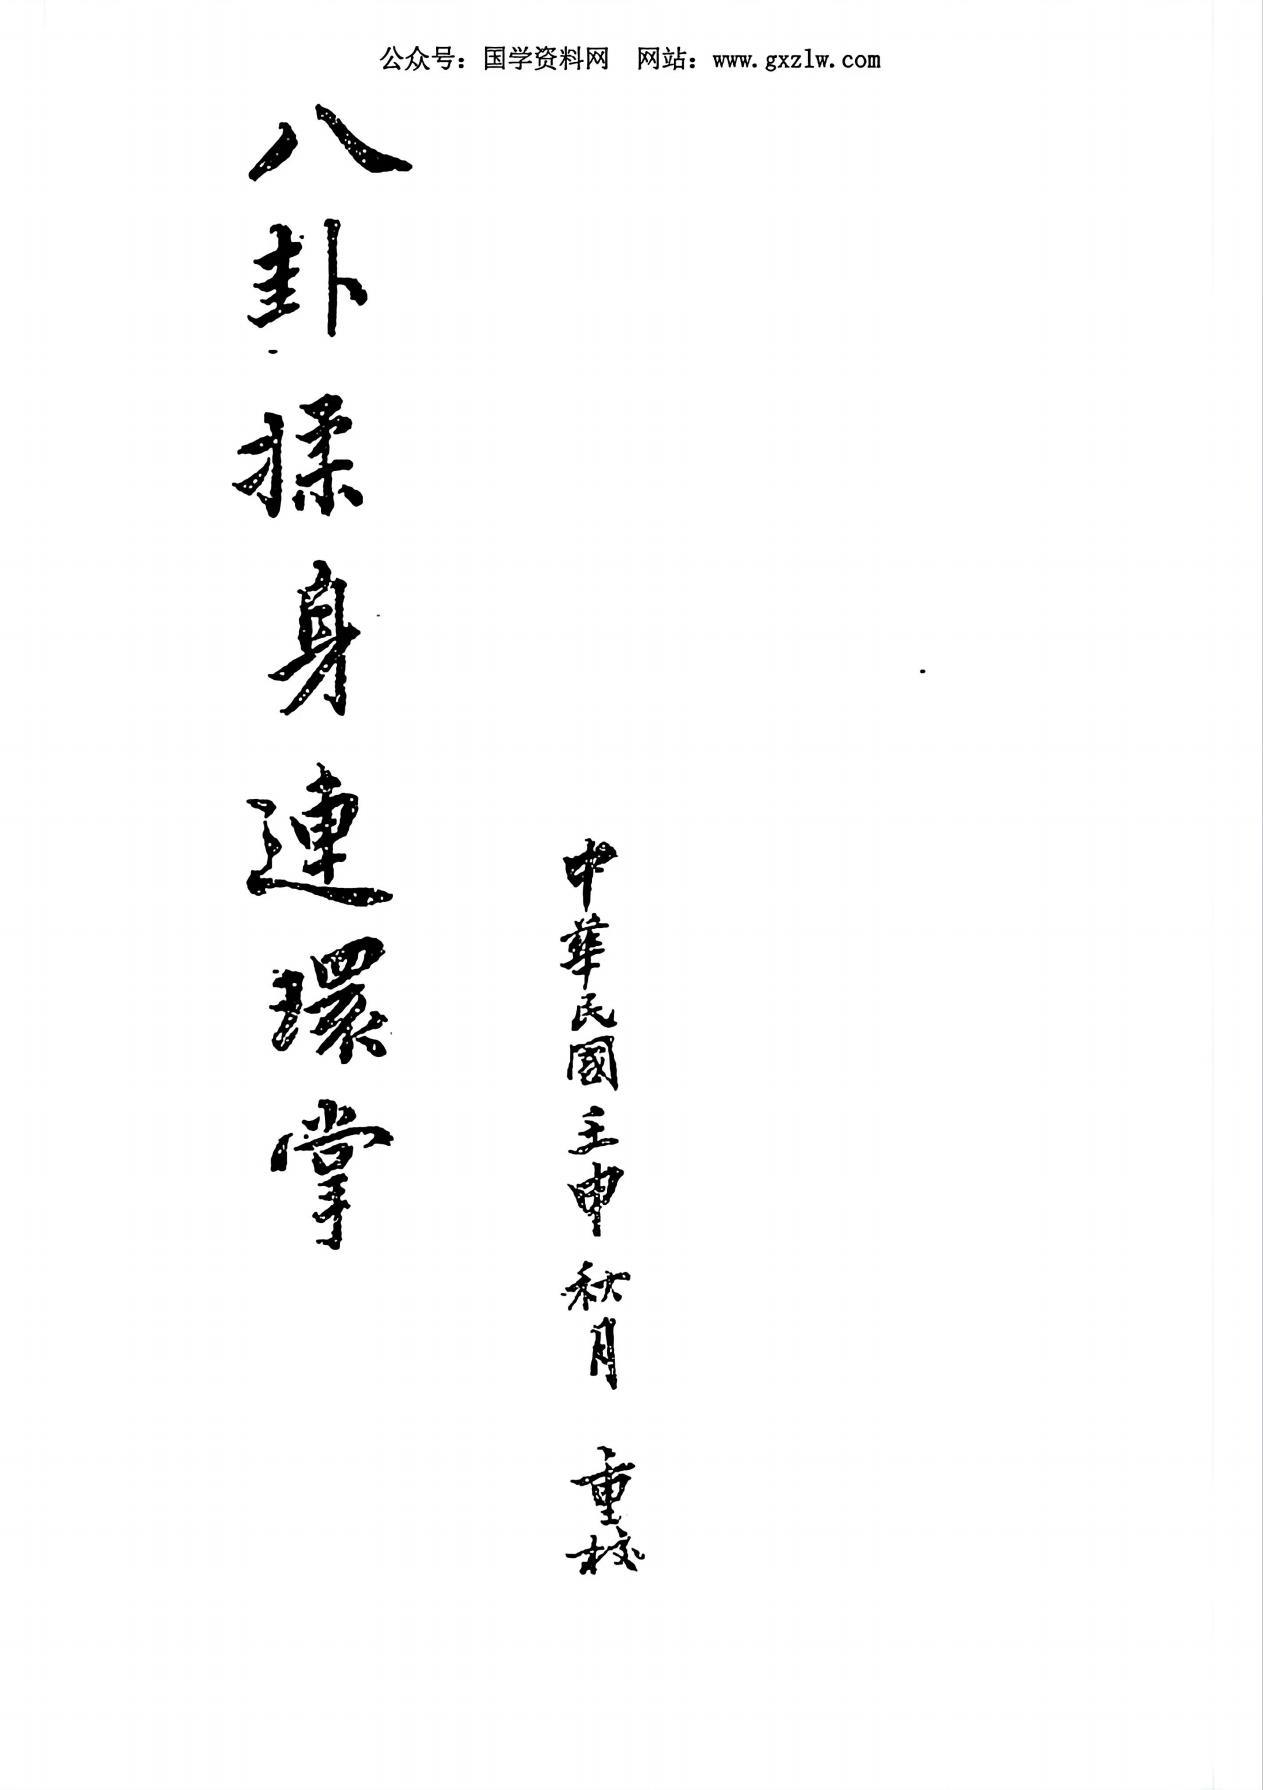 公众号：国学资料网　网站：www.gxzlw.com
八卦揉身連環掌
中華民國壬申秋月　重校